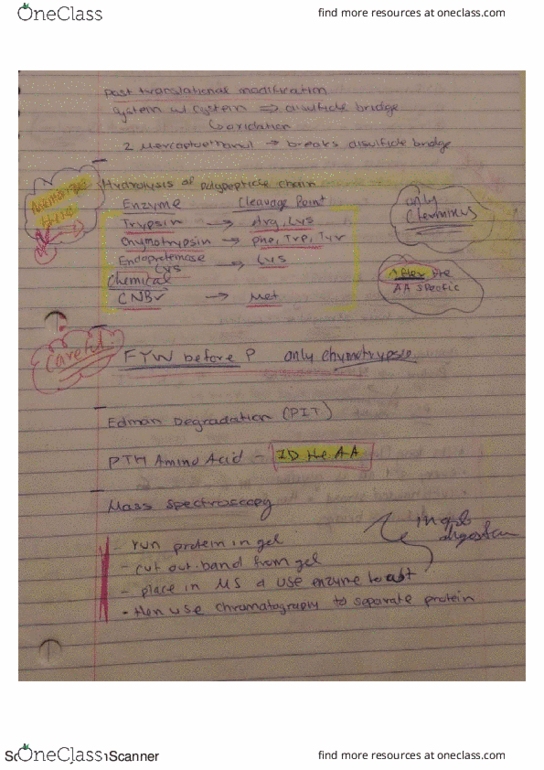 OneClass
find more resources at oneclass.com
post translational modification
System w/ Cystein => disulfide bridge
↳ oxidation
2 Mercaptoethanol → breaks disulfide bridge
Hydrolysis of polypeptide chain
Enzyme Cleavage Point
Trypsin → Arg, Lys
Chymotrypsin → Phe, Trp, Tyr
Endoproteinase Lys → Lys
Chemical
CNBr → Met
only C terminus
After the AA specific
Careful
FYW before P only chymotrypsin
Edman Degradation (PIT)
PTH Amino Acid - ID the AA
Mass Spectroscopy
in gel digestion
- run protein in gel
- cut out band from gel
- place in MS & use enzyme to
- then use chromatography to separate protein
OneClass Scanner
find more resources at oneclass.com